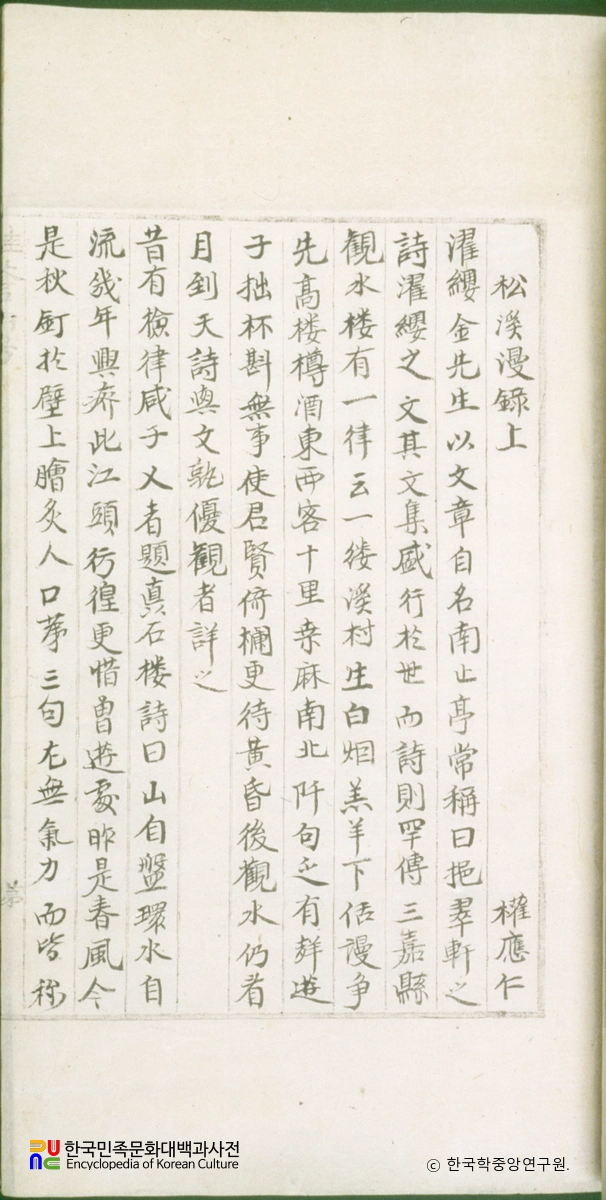 松溪漫錄上 權應仁
濯纓金先生以文章自名南止亭常稱曰挹翠軒之
詩濯纓之文其文集盛行於世而詩則罕傳三嘉縣
觀水楼有一律云一缕溪村生白烟羔羊下佸謾争
先高楼樽酒東西客十里桒麻南北阡句乏有群遊
子拙杯斟無事使君賢倚欄更待黃昏後觀水仍看
月到天詩與文孰優觀者詳之
昔有檢律咸子乂者題矗石楼詩曰山自盤環水自
流幾年興癈此江頭彷徨更惜曾遊處昨是春風今
是秋釘於壁上膾炙人口苐三句尤無氣力而皆称
苐
한국민족문화대백과사전
Encyclopedia of Korean Culture
© 한국학중앙연구원.